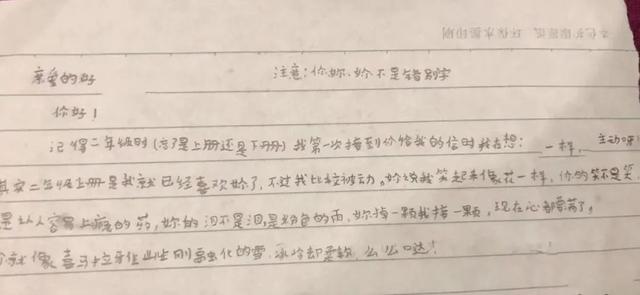 亲爱的妤
注意:你妳、妳不是错别字
你好!
记得二年级时(忘了是上册还是下册)我第一次接到你给我的信时我在想: 一样, 主动呀
其实二年级上册是我就已经喜欢妳了,不过我比较被动。妳说我笑起来像花一样,你的笑不是笑
是让人容易上瘾的药,妳的泪不是泪是粉色的雨,妳掉一颗我接一颗,现在心都零落了。
就像喜马拉牙山上刚融化的雪,冰冷却柔软,么么哒!